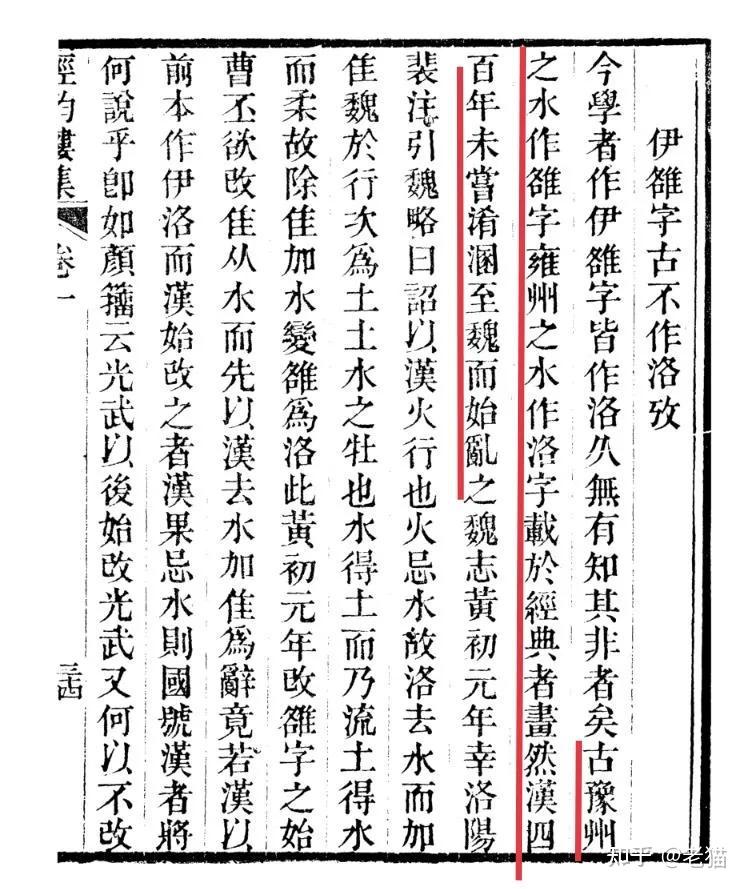 伊雒字古不作洛攷
今學者作伊雒字皆作洛久無有知其非者矣古豫州
之水作雒字雍州之水作洛字載於經典者畫然漢四
百年未嘗淆溷至魏而始亂之魏志黃初元年幸洛陽
裴注引魏略曰詔以漢火行也火忌水故洛去水而加
隹魏於行次爲土土水之牡也水得土而乃流土得水
而柔故除隹加水變雒爲洛此黃初元年改雒字之始
曹丕欲改隹从水而先以漢去水加隹爲辭竟若漢以
前本作伊洛而漢始改之者漢果忌水則國號漢者將
何說乎卽如顏籒云光武以後始改光武又何以不改
經韵樓集
卷一
三十四
知乎 @老猫